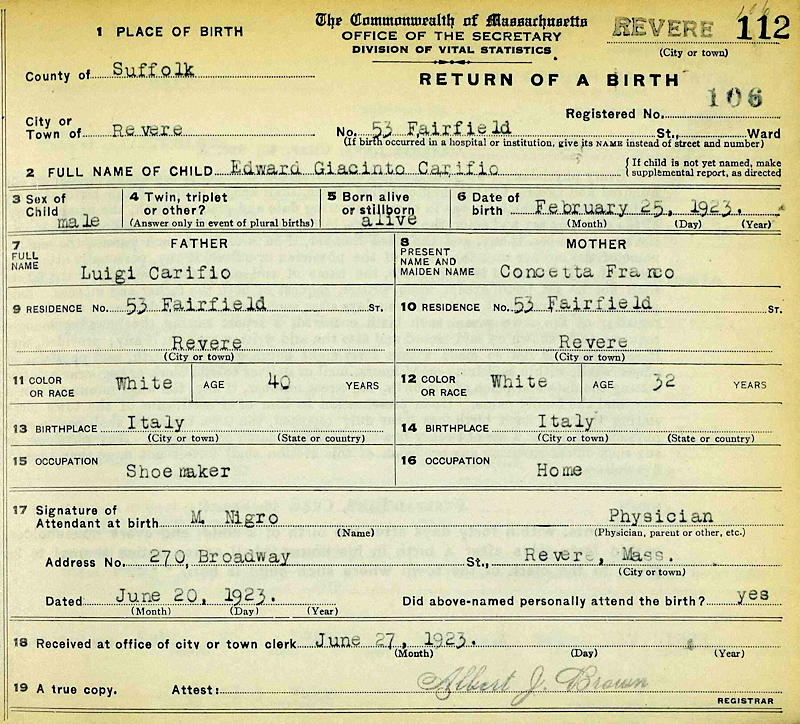 The Commonwealth of Massachusetts
OFFICE OF THE SECRETARY
DIVISION OF VITAL STATISTICS
REVERE 112
(City or town)
1 PLACE OF BIRTH
County of Suffolk
RETURN OF A BIRTH
Registered No. 106
City or
Town of Revere No. 53 Fairfield St., Ward
(If birth occurred in a hospital or institution, give its NAME instead of street and number)
2 FULL NAME OF CHILD Edward Giacinto Carifio { If child is not yet named, make
supplemental report, as directed
3 Sex of
Child male
4 Twin, triplet
or other?
(Answer only in event of plural births)
5 Born alive
or stillborn
alive
6 Date of
birth February 25, 1923.
(Month) (Day) (Year)
7 FULL NAME
FATHER
Luigi Carifio
8 PRESENT NAME AND MAIDEN NAME
MOTHER
Concetta Franco
9 RESIDENCE No. 53 Fairfield ST.
Revere
(City or town)
10 RESIDENCE No. 53 Fairfield ST.
Revere
(City or town)
11 COLOR
OR RACE White AGE 40 YEARS
12 COLOR
OR RACE White AGE 32 YEARS
13 BIRTHPLACE Italy
(City or town) (State or country)
14 BIRTHPLACE Italy
(City or town) (State or country)
15 OCCUPATION
Shoemaker
16 OCCUPATION
Home
17 Signature of
Attendant at birth M. Nigro Physician
(Name) (Physician, parent or other, etc.)
Address No. 270, Broadway St., Revere, Mass.
(City or town)
Dated June 20, 1923. Did above-named personally attend the birth? yes
(Month) (Day) (Year)
18 Received at office of city or town clerk June 27, 1923.
(Month) (Day) (Year)
19 A true copy. Attest: Albert J. Brown
REGISTRAR